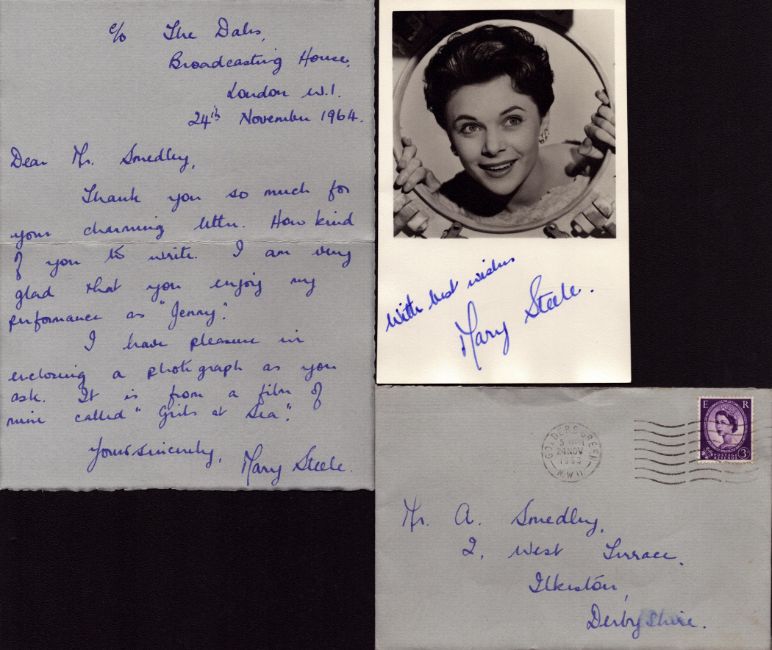 c/o The Dales,
Broadcasting House,
London W.1.
24th November 1964.
Dear Mr. Smedley,
Thank you so much for
your charming letter. How kind
of you to write. I am very
glad that you enjoy my
performance as "Jenny".
I have pleasure in
enclosing a photograph as you
ask. It is from a film of
mine called "Girls at Sea".
Yours sincerely,
Mary Steele.
With best wishes
Mary Steele.
E R
3D
GOLDERS GREEN
24 NOV
N.W.11
Mr. A. Smedley,
2, West Terrace,
Ilkeston,
Derbyshire.